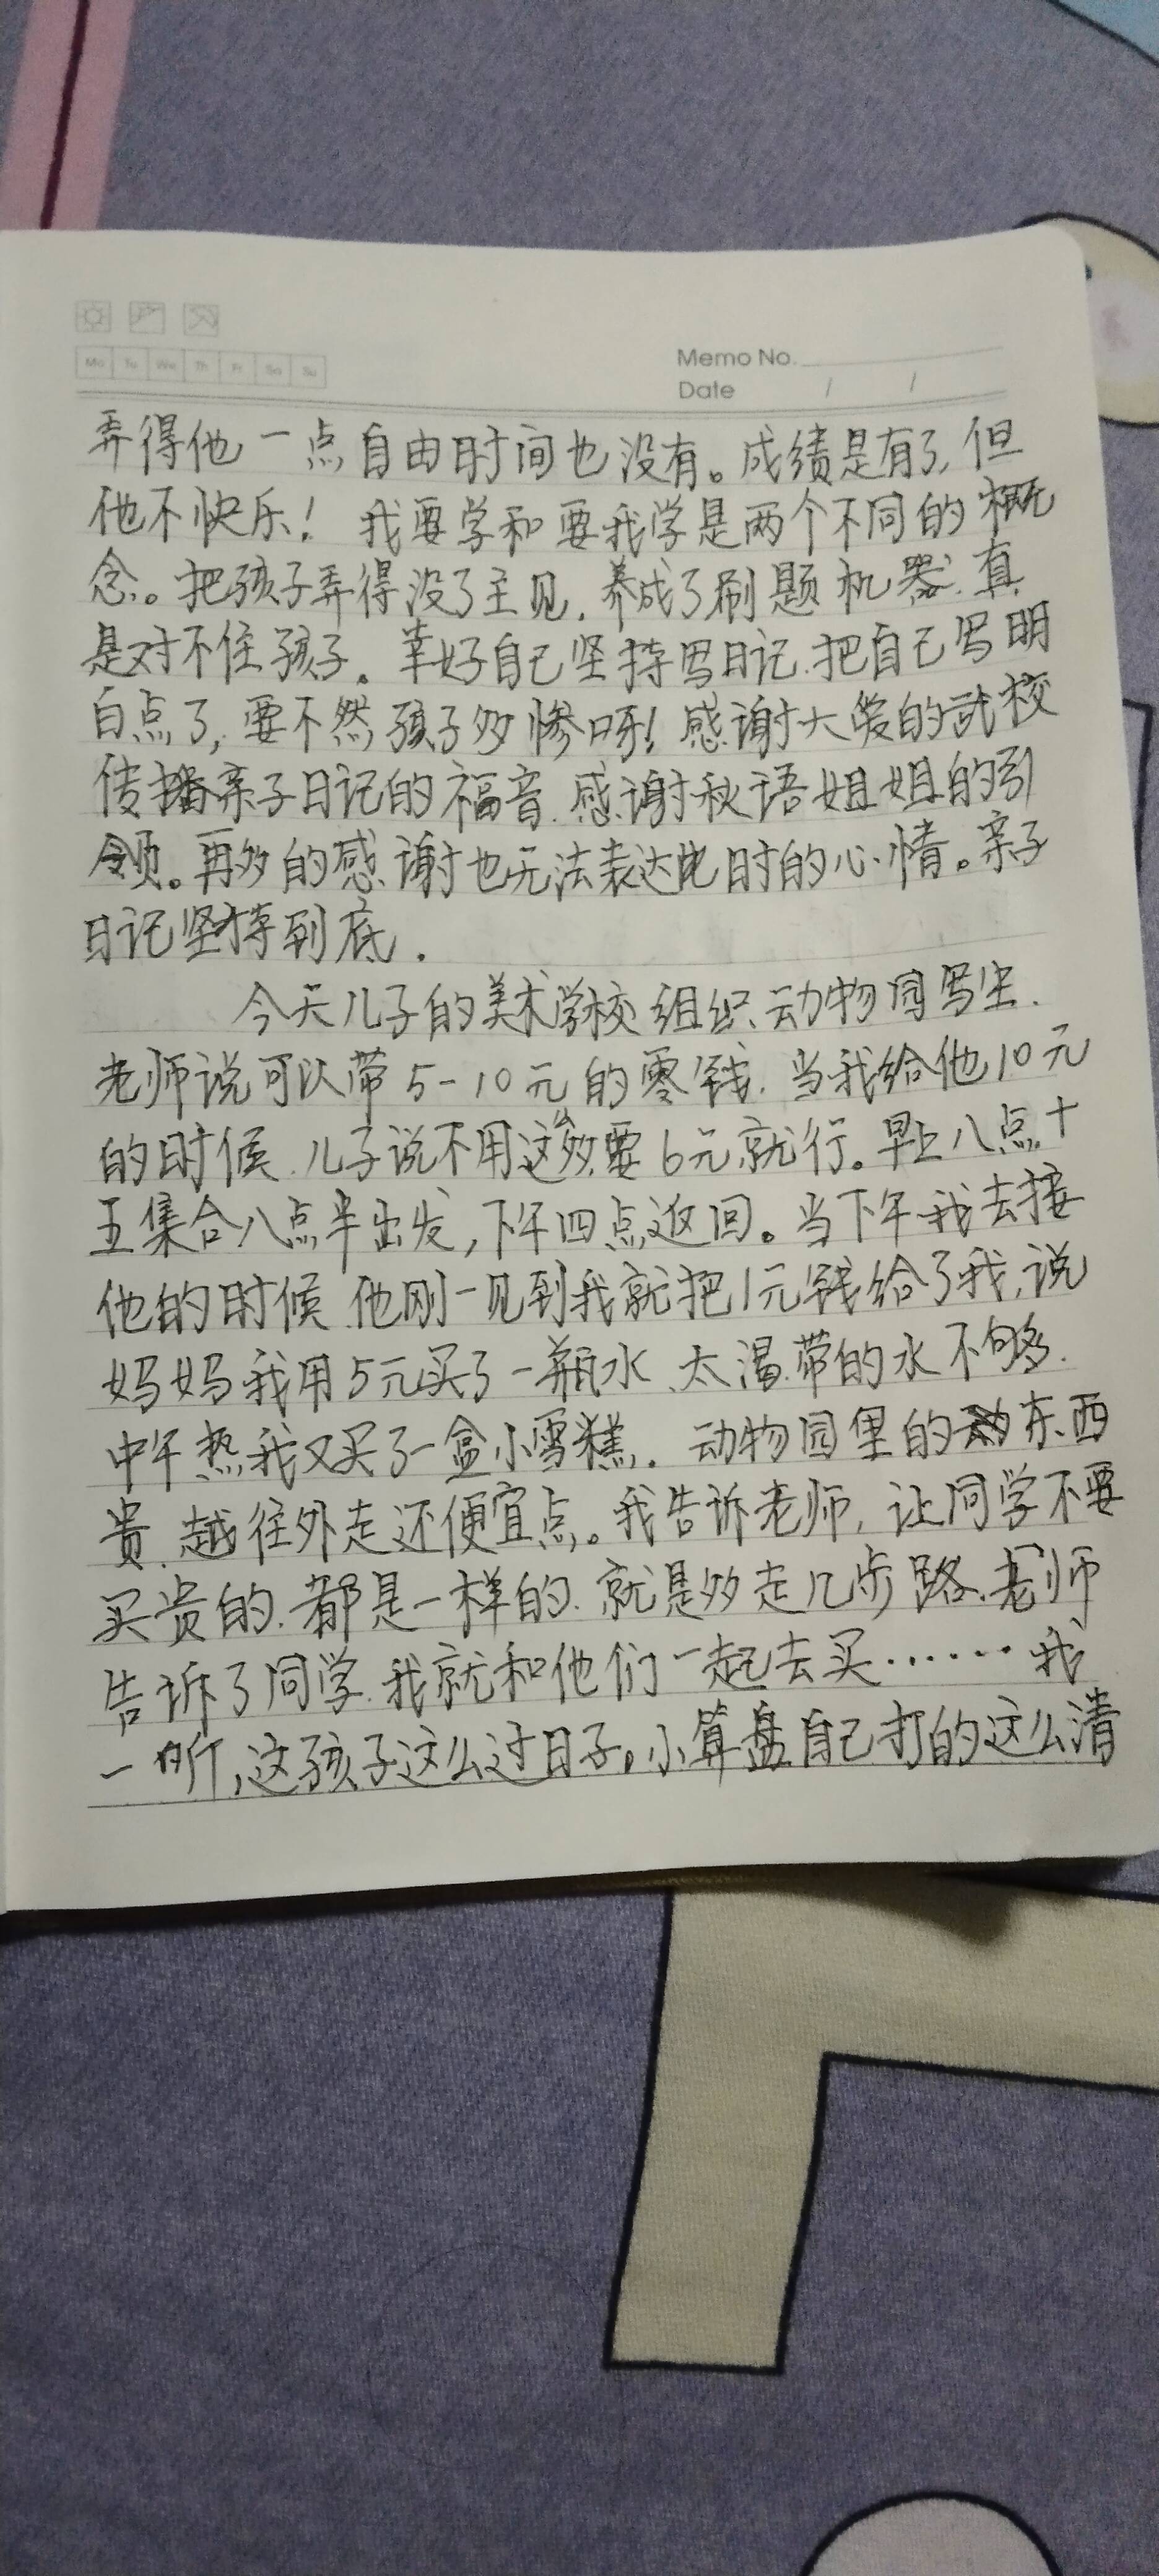 Mo Tu We Th Fr Sa Su
Memo No.
Date / /
弄得他一点自由时间也没有。成绩是有了,但
他不快乐!我要学和要我学是两个不同的概
念。把孩子弄得没了主见,养成了刷题机器.真
是对不住孩子。幸好自己坚持写日记.把自己写明
白点了,要不然孩子多惨呀!感谢大爱的武校
传播亲子日记的福音.感谢秋语姐姐的引
领。再多的感谢也无法表达此时的心情。亲子
日记坚持到底.
今天儿子的美术学校组织动物园写生.
老师说可以带5-10元的零钱.当我给他10元
的时候.儿子说不用这么多要6元就行。早上八点十
五集合八点半出发,下午四点返回。当下午我去接
他的时候.他刚一见到我就把1元钱给了我,说
妈妈我用5元买了一瓶水、太渴.带的水不够.
中午热我又买了一盒小雪糕.动物园里的东西
贵.越往外走还便宜点。我告诉老师,让同学不要
买贵的.都是一样的.就是多走几步路.老师
告诉了同学.我就和他们一起去买……我
一听,这孩子这么过日子。小算盘自己打的这么清